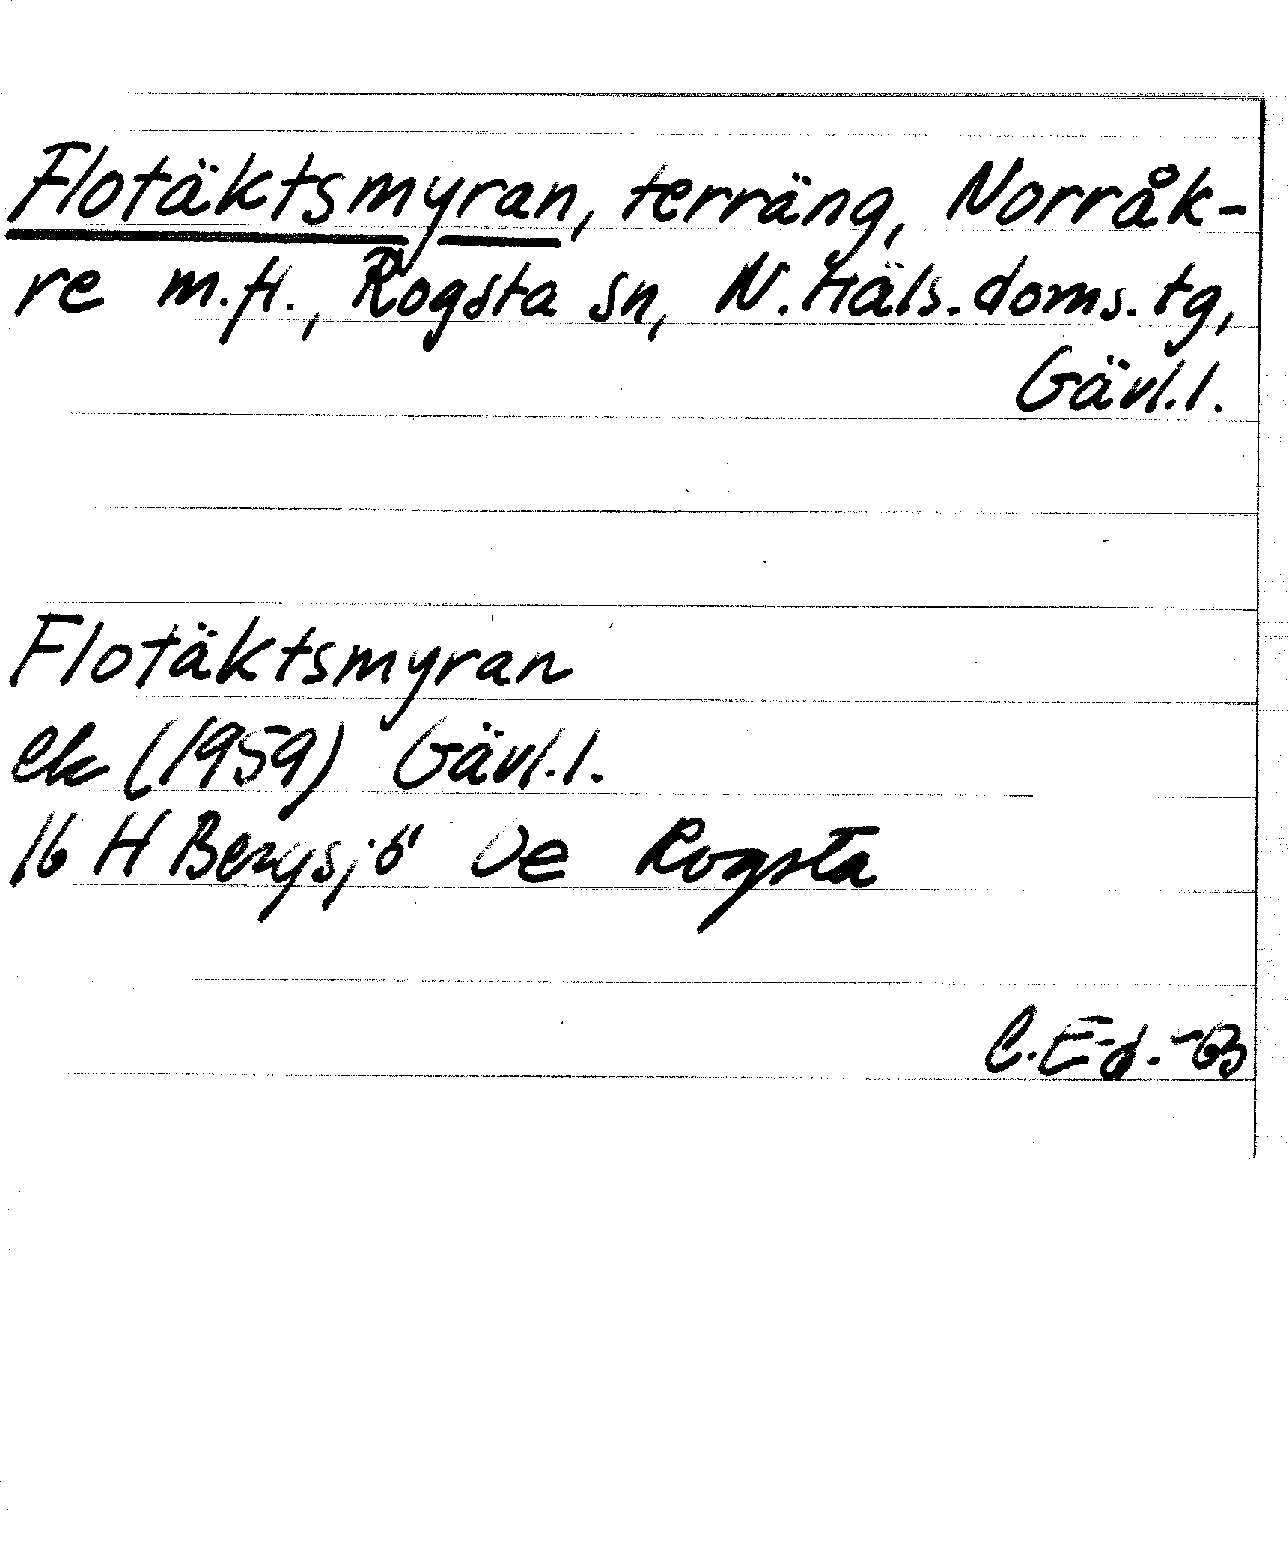 Flotäktsmyran, terräng, Norråk-
re m.fl., Rogsta sn, N. Häls. doms. tg,
Gävl. l.
Flotäktsmyran
ek (1959) Gävl. l.
16 H Bergsjö Oe Rogsta
C. Ed.-B